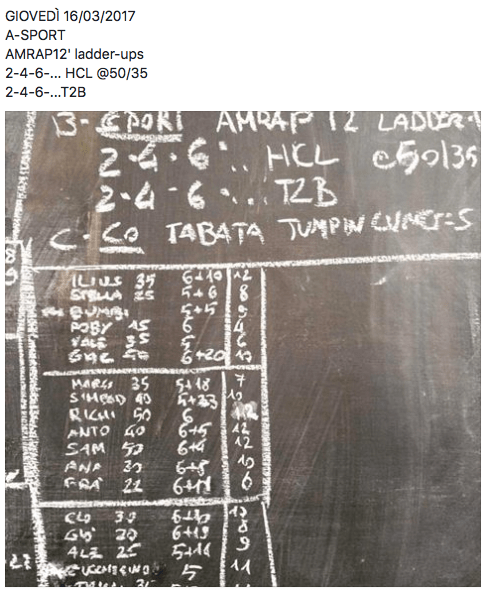 GIOVEDÌ 16/03/2017
A-SPORT
AMRAP12' ladder-ups
2-4-6-... HCL @50/35
2-4-6-...T2B
B- SPORT AMRAP 12 LADDER-
2-4-6... HCL @50/35
2-4-6... T2B
C- CO TABATA JUMPIN LUNGES
35 6+10 12
STELLA 25 5+6 8
BUMBI 5+5 9
ROBY 15 6 4
35 5 6
6+20
MARCO 35 5+18 7
40 5+23 10
RICHI 50 6
ANTO 40 6+5 12
SAM 50 6+4 12
ANA 30 10
FRA 22 6
CLO 30
GIO 20 6+13 8
ALE 25 5+14 9
5 11